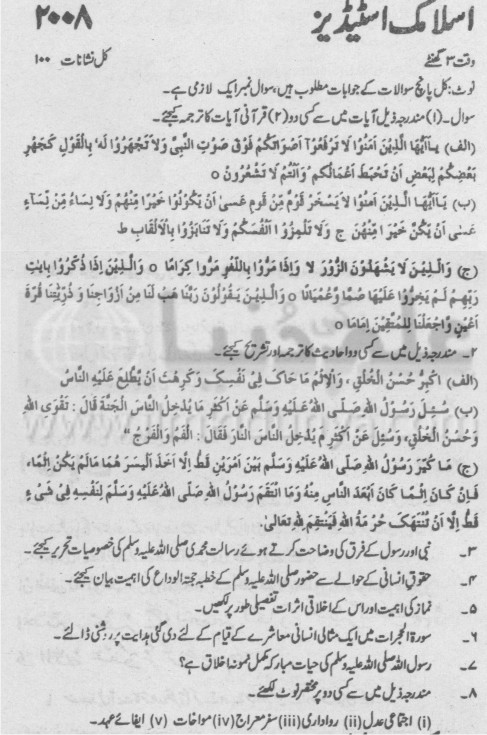 اسلامک اسٹیڈیز
۲۰۰۸
وقت ۳ گھنٹے
کل نشانات ۱۰۰
نوٹ: کل پانچ سوالات کے جوابات مطلوب ہیں، سوال نمبر ایک لازمی ہے۔
سوال۔(۱) مندرجہ ذیل آیات میں سے کسی دو (۲) قرآنی آیات کا ترجمہ کیجئے۔
(الف) یٰۤاَیُّهَا الَّذِیْنَ اٰمَنُوْا لَا تَرْفَعُوْۤا اَصْوَاتَکُمْ فَوْقَ صَوْتِ النَّبِیِّ وَلَا تَجْهَرُوْا لَهٗ بِالْقَوْلِ کَجَهْرِ
بَعْضِکُمْ لِبَعْضٍ اَنْ تَحْبَطَ اَعْمَالُکُمْ وَاَنْتُمْ لَا تَشْعُرُوْنَ o
(ب) یٰۤاَیُّهَا الَّذِیْنَ اٰمَنُوْا لَا یَسْخَرْ قَوْمٌ مِّنْ قَوْمٍ عَسٰۤی اَنْ یَّکُوْنُوْا خَیْرًا مِّنْهُمْ وَلَا نِسَاءٌ مِّنْ نِّسَاءٍ
عَسٰۤی اَنْ یَّکُنَّ خَیْرًا مِّنْهُنَّ ج وَلَا تَلْمِزُوْۤا اَنْفُسَکُمْ وَلَا تَنَابَزُوْا بِالْاَلْقَابِ ط
(ج) وَالَّذِیْنَ لَا یَشْهَدُوْنَ الزُّوْرَ لا وَاِذَا مَرُّوْا بِاللَّغْوِ مَرُّوْا کِرَامًا o وَالَّذِیْنَ اِذَا ذُکِّرُوْا بِاٰیٰتِ
رَبِّهِمْ لَمْ یَخِرُّوْا عَلَیْهَا صُمًّا وَّعُمْیَانًا o وَالَّذِیْنَ یَقُوْلُوْنَ رَبَّنَا هَبْ لَنَا مِنْ اَزْوَاجِنَا وَذُرِّیّٰتِنَا قُرَّةَ
اَعْیُنٍ وَّاجْعَلْنَا لِلْمُتَّقِیْنَ اِمَامًا o
۲۔ مندرجہ ذیل میں سے کسی دو احادیث کا ترجمہ اور تشریح کیجئے۔
(الف) اَکْبَرُ حُسْنُ الْخُلُقِ، وَالْاِثْمُ مَا حَاکَ فِیْ نَفْسِکَ وَکَرِهْتَ اَنْ یَّطَّلِعَ عَلَیْهِ النَّاسُ
(ب) سُئِلَ رَسُوْلُ اللهِ صَلَّی اللهُ عَلَیْهِ وَسَلَّمَ عَنْ اَکْثَرِ مَا یُدْخِلُ النَّاسَ الْجَنَّةَ قَالَ: تَقْوَی اللهِ
وَحُسْنُ الْخُلُقِ، وَسُئِلَ عَنْ اَکْثَرِ مَا یُدْخِلُ النَّاسَ النَّارَ فَقَالَ: اَلْفَمُ وَالْفَرْجُ"
(ج) مَا خُیِّرَ رَسُوْلُ اللهِ صَلَّی اللهُ عَلَیْهِ وَسَلَّمَ بَیْنَ اَمْرَیْنِ قَطُّ اِلَّا اَخَذَ اَیْسَرَ هُمَا مَا لَمْ یَکُنْ اِثْمًا،
فَاِنْ کَانَ اِثْمًا کَانَ اَبْعَدَ النَّاسِ مِنْهُ وَمَا انْتَقَمَ رَسُوْلُ اللهِ صَلَّی اللهُ عَلَیْهِ وَسَلَّمَ لِنَفْسِهٖ فِیْ شَیْءٍ
قَطُّ اِلَّا اَنْ تُنْتَهَکَ حُرْمَةُ اللهِ فَیَنْتَقِمُ لِلّٰهِ تَعَالٰی
۳۔ نبی اور رسول کے فرق کی وضاحت کرتے ہوئے رسالت محمدی صلی اللہ علیہ وسلم کی خصوصیات تحریر کیجئے۔
۴۔ حقوق انسانی کے حوالے سے حضور صلی اللہ علیہ وسلم کے خطبہ حجۃ الوداع کی اہمیت بیان کیجئے۔
۵۔ نماز کی اہمیت اور اس کے اخلاقی اثرات تفصیلی طور پر لکھیں۔
۶۔ سورۃ الحجرات میں ایک مثالی انسانی معاشرے کے قیام کے لئے دی گئی ہدایت پر روشنی ڈالئے۔
۷۔ رسول اللہ صلی اللہ علیہ وسلم کی حیات مبارکہ مکمل نمونہ اخلاق ہے؟
۸۔ مندرجہ ذیل میں سے کسی دو پر مختصر نوٹ لکھئے۔
(i) اجتماعی عدل (ii) رواداری (iii) سفر معراج (iv) مواخات (v) ایفائے عہد۔